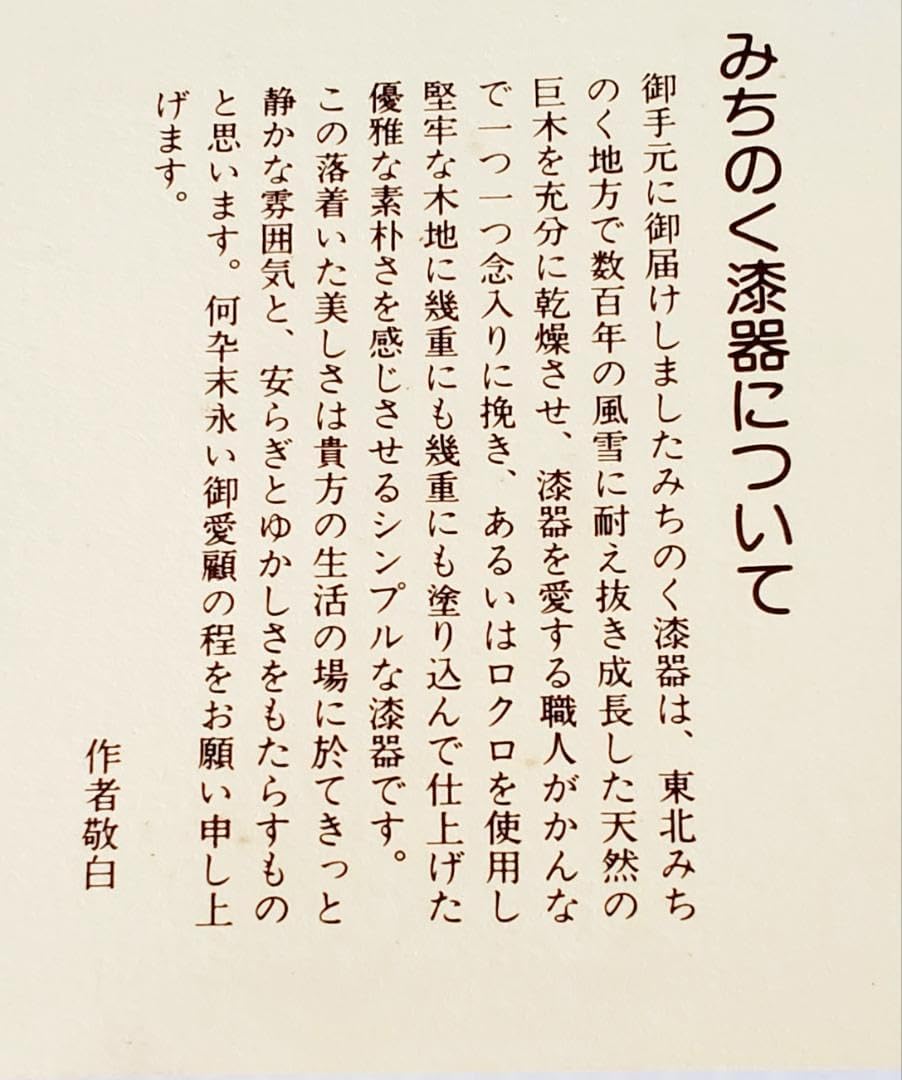 みちのく漆器について
御手元に御届けしましたみちのく漆器は、東北みち
のく地方で数百年の風雪に耐え抜き成長した天然の
巨木を充分に乾燥させ、漆器を愛する職人がかんな
で一つ一つ念入りに挽き、あるいはロクロを使用し
堅牢な木地に幾重にも幾重にも塗り込んで仕上げた
優雅な素朴さを感じさせるシンプルな漆器です。
この落着いた美しさは貴方の生活の場に於てきっと
静かな雰囲気と、安らぎとゆかしさをもたらすもの
と思います。何卒末永い御愛顧の程をお願い申し上
げます。
作者敬白